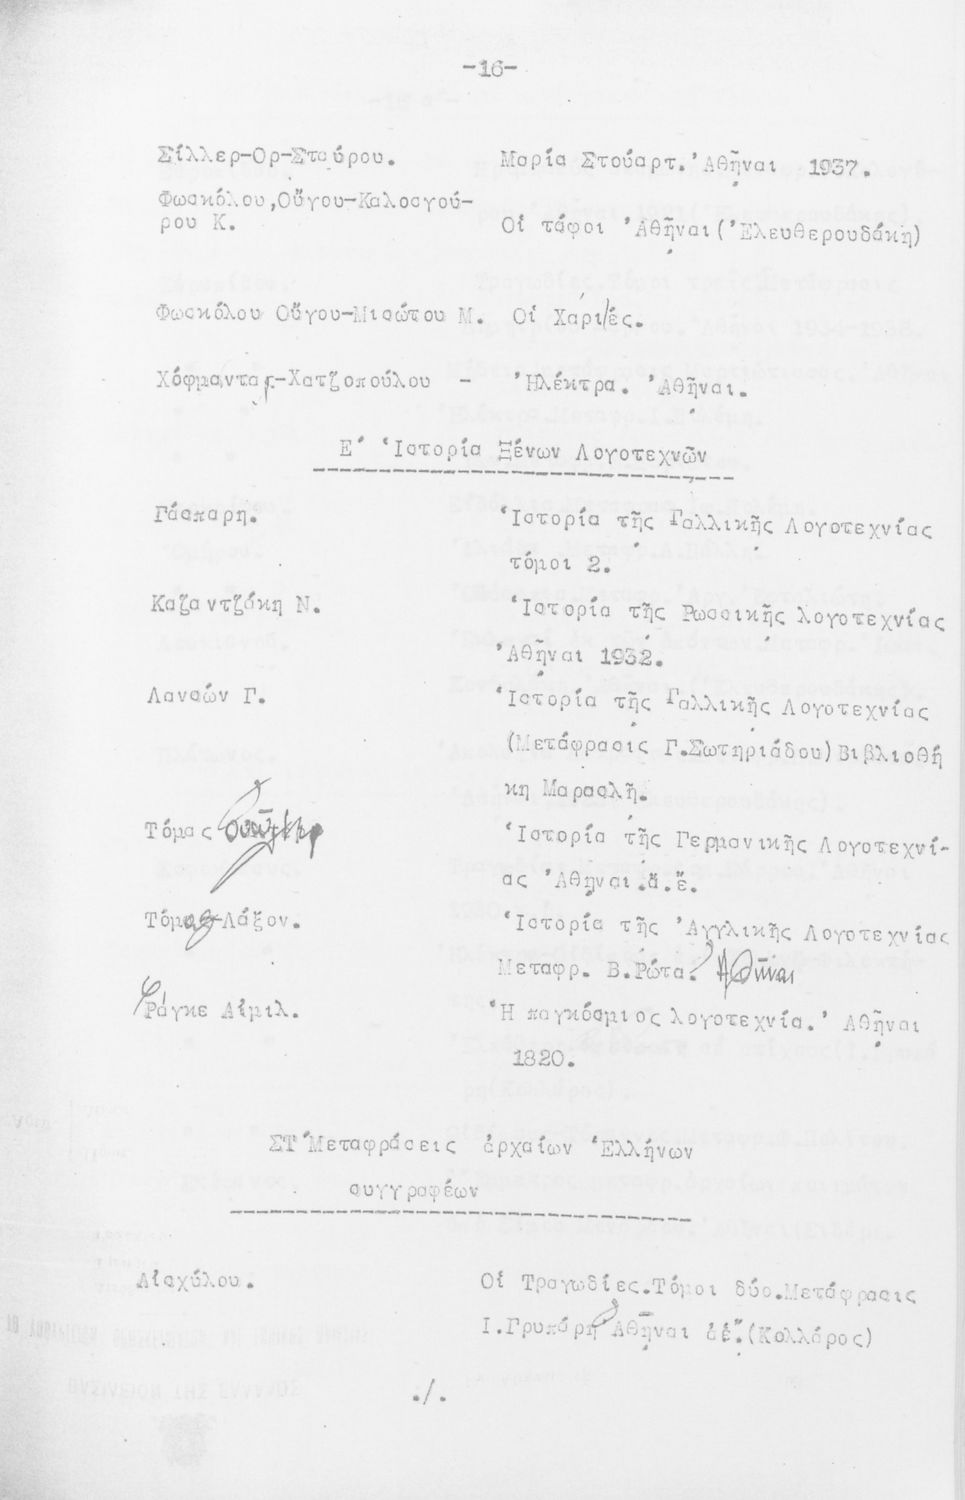 -16-
Σίλλερ-Ορ-Σταύρου. Μαρία Στούαρτ. Ἀθῆναι 1937.
Φωσκόλου,Οὔγου-Καλοσγού-
ρου Κ. Οἱ τάφοι Ἀθῆναι (Ἐλευθερουδάκη)
Φωσκόλου Οὔγου-Μιρώτου Μ. Οἱ Χάριτες.
Χόφμανταλ-Χατζοπούλου - Ἠλέκτρα. Ἀθῆναι.
Ε΄ Ἱστορία Ξένων Λογοτεχνῶν
Γάσπαρη. Ἱστορία τῆς Γαλλικῆς Λογοτεχνίας
τόμοι 2.
Καζαντζάκη Ν. Ἱστορία τῆς Ρωσσικῆς λογοτεχνίας
Ἀθῆναι 1932.
Λανσών Γ. Ἱστορία τῆς Γαλλικῆς Λογοτεχνίας
(Μετάφρασις Γ.Σωτηριάδου) Βιβλιοθή
κη Μαρασλῆ.
Τόμας Ἱστορία τῆς Γερμανικῆς Λογοτεχνί-
ας Ἀθῆναι.ἄ.ἔ.
Τόμας-Λάξον. Ἱστορία τῆς Ἀγγλικῆς Λογοτεχνίας
Μεταφρ. Β.Ρώτα. Ἀθῆναι
Ράγκε Αἰμιλ. Ἡ παγκόσμιος λογοτεχνία. Ἀθῆναι
1820.
ΣΤ΄ Μεταφράσεις ἀρχαίων Ἑλλήνων
συγγραφέων
Αἰσχύλου. Οἱ Τραγωδίες.Τόμοι δύο.Μετάφρασις
Ι.Γρυπάρη Ἀθῆναι ἄἔ.(Κολλάρος)
./.